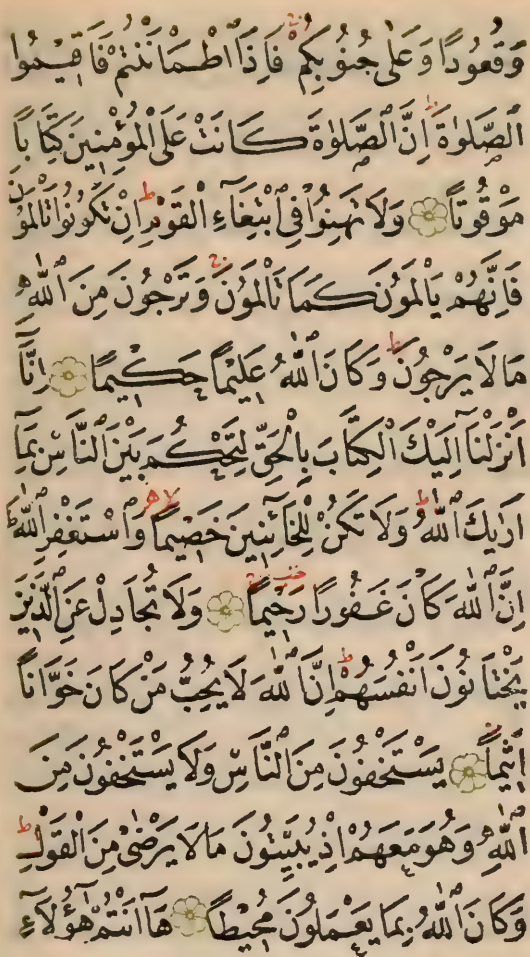 وَقُعُودًا وَعَلٰى جُنُوبِكُمْ فَاِذَا اطْمَأْنَنْتُمْ فَاَقِيمُوا
الصَّلٰوةَ اِنَّ الصَّلٰوةَ كَانَتْ عَلَى الْمُؤْمِنِينَ كِتَابًا
مَوْقُوتًا وَلَا تَهِنُوا فِى ابْتِغَاءِ الْقَوْمِ اِنْ تَكُونُوا تَأْلَمُونَ
فَاِنَّهُمْ يَأْلَمُونَ كَمَا تَأْلَمُونَ وَتَرْجُونَ مِنَ اللّٰهِ
مَا لَا يَرْجُونَ وَكَانَ اللّٰهُ عَلِيمًا حَكِيمًا اِنَّٓا
اَنْزَلْنَٓا اِلَيْكَ الْكِتَابَ بِالْحَقِّ لِتَحْكُمَ بَيْنَ النَّاسِ بِمَٓا
اَرٰيكَ اللّٰهُ وَلَا تَكُنْ لِلْخَٓائِنِينَ خَصِيمًا وَاسْتَغْفِرِ اللّٰهَ
اِنَّ اللّٰهَ كَانَ غَفُورًا رَحِيمًا وَلَا تُجَادِلْ عَنِ الَّذِينَ
يَخْتَانُونَ اَنْفُسَهُمْ اِنَّ اللّٰهَ لَا يُحِبُّ مَنْ كَانَ خَوَّانًا
اَثِيمًا يَسْتَخْفُونَ مِنَ النَّاسِ وَلَا يَسْتَخْفُونَ مِنَ
اللّٰهِ وَهُوَ مَعَهُمْ اِذْ يُبَيِّتُونَ مَا لَا يَرْضٰى مِنَ الْقَوْلِ
وَكَانَ اللّٰهُ بِمَا يَعْمَلُونَ مُحِيطًا هَٓا اَنْتُمْ هٰٓؤُلَٓاءِ